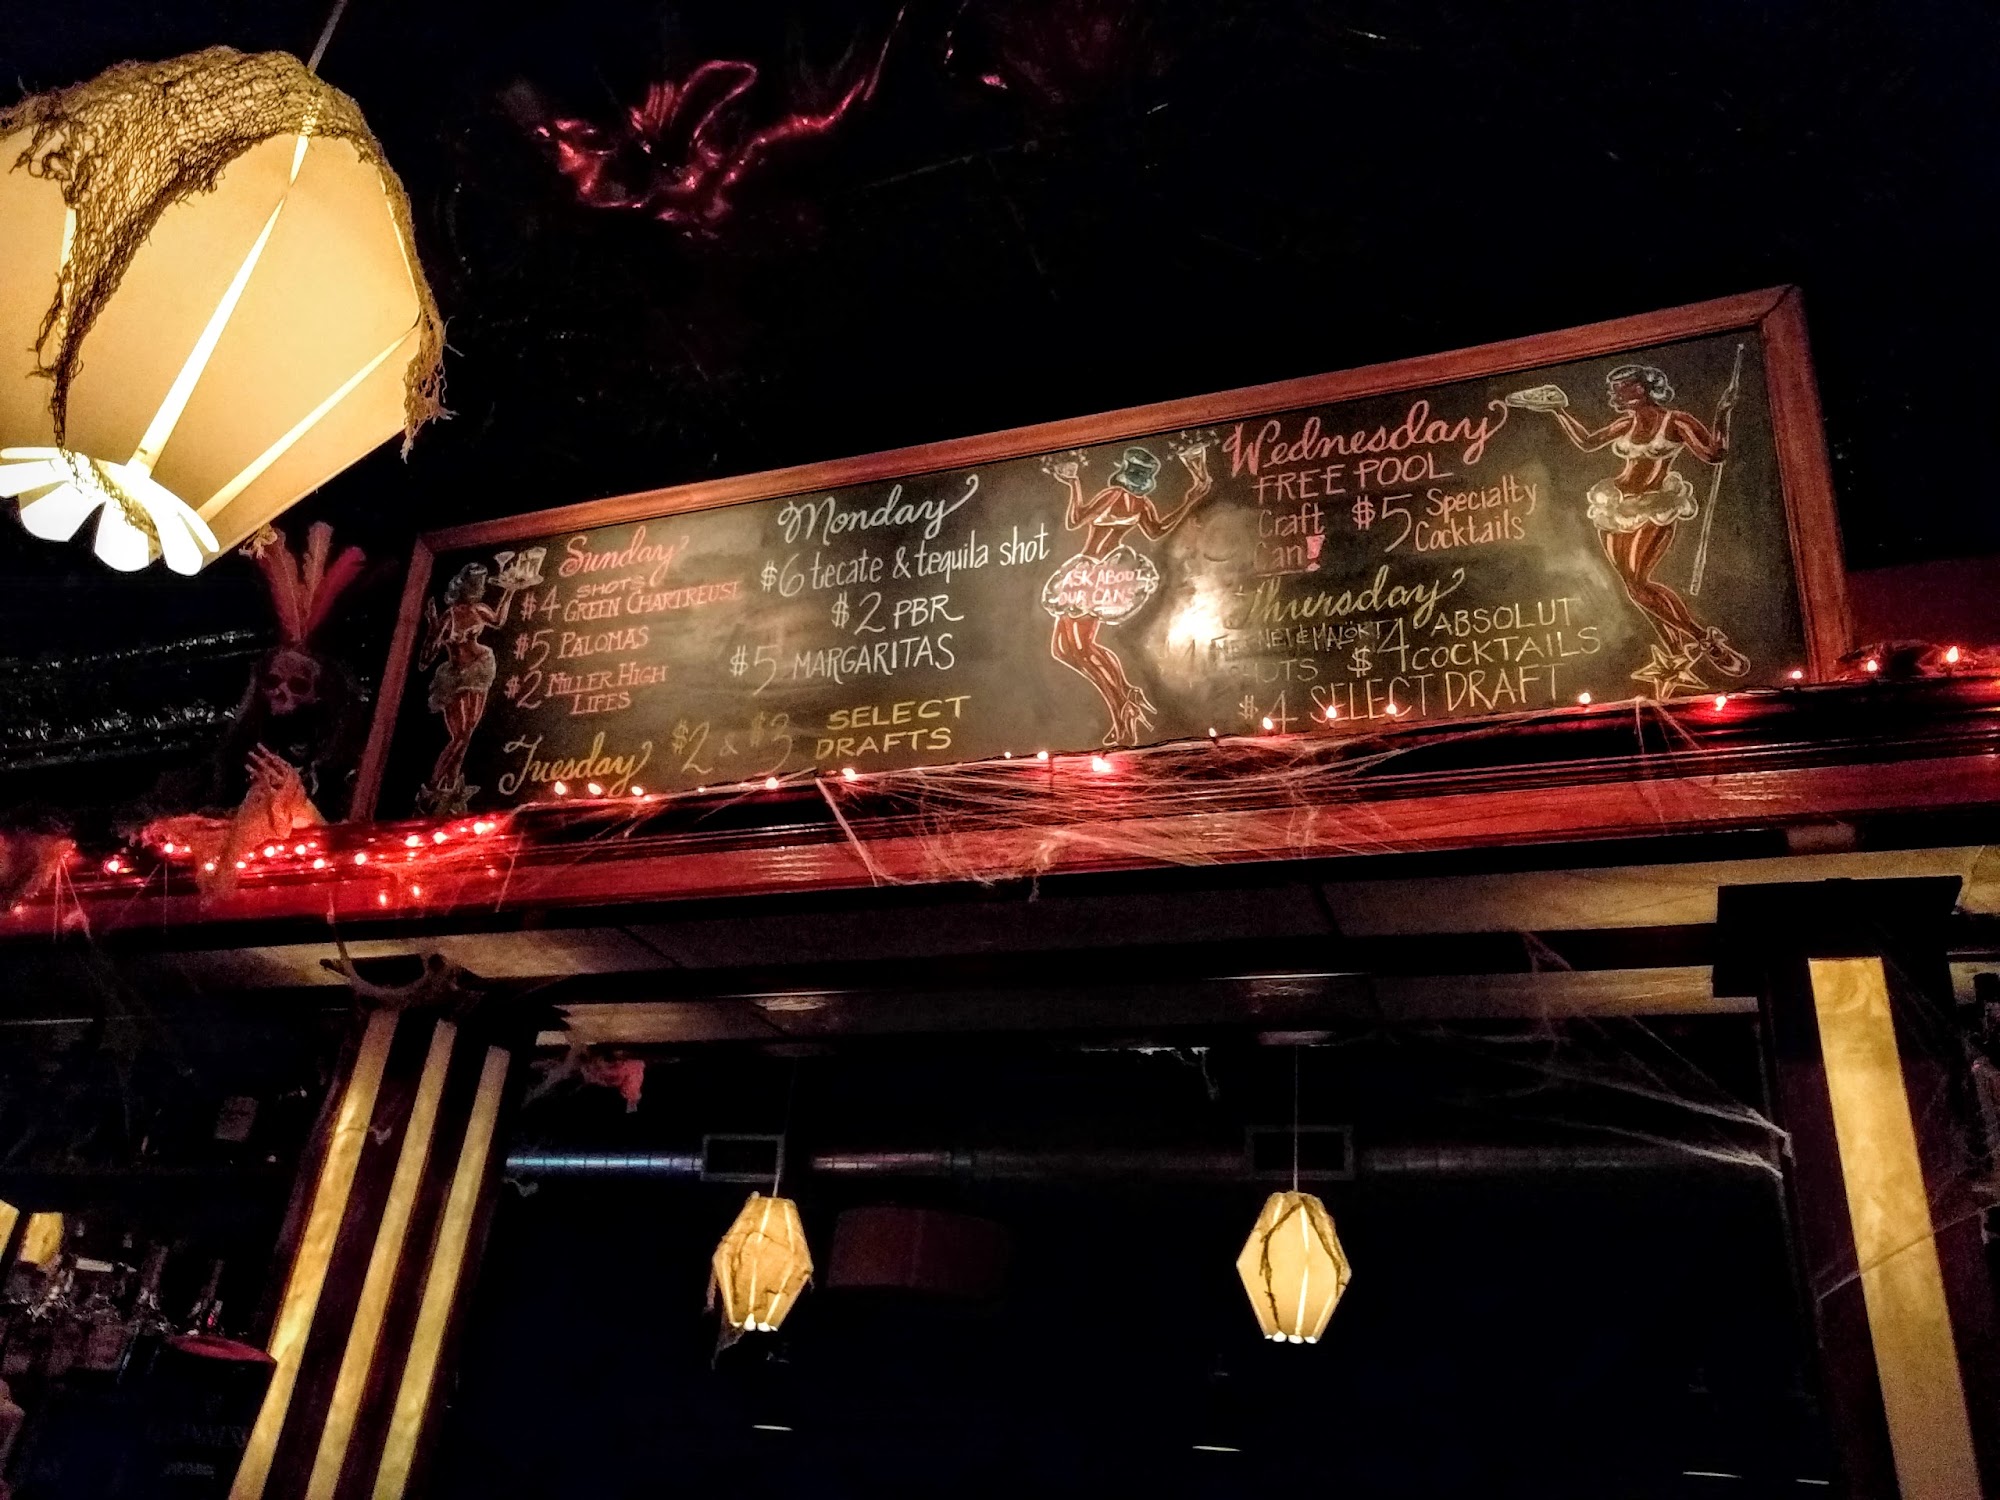 Sunday
SHOTS
$4 GREEN CHARTREUSE
$5 PALOMAS
$2 MILLER HIGH
LIFES
Monday
$6 tecate & tequila shot
$2 PBR
$5 MARGARITAS
Tuesday $2 & $3 SELECT
DRAFTS
ASK ABOUT
OUR CANS
Wednesday
FREE POOL
Craft
Can!
$5 Specialty
Cocktails
Thursday
& MALÖRT
$4 ABSOLUT
COCKTAILS
$4 SELECT DRAFT